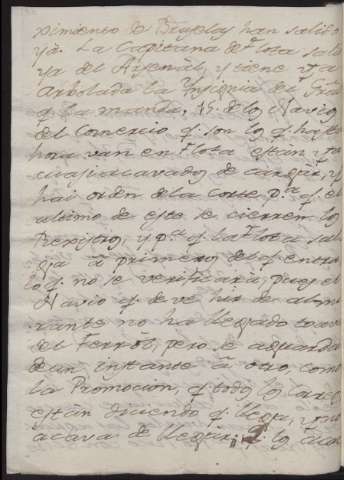 ximiento de Bruselas han salido
ya. La Capitana de flota salio
ya del Arsenal, y tiene ya
arbolada la Insignia del
q la manda, 15 de los Navios
del Comercio q son los q hasta
hora van en flota estan ya
casi acavados de cargar, y
hai orden de la corte pª q el
ultimo de este se cierren los
Rexistros, y pª q la flota sal
ga à primero del q entra
lo q no se verificarà, pues el
Navio q de ve hir de almi
rante no ha llegado toavia
del Ferrol, pero se aguarda
de un instante à otro, como
la Promocion, q todos los
estan diciendo q llega, y no
acava de llegar; los